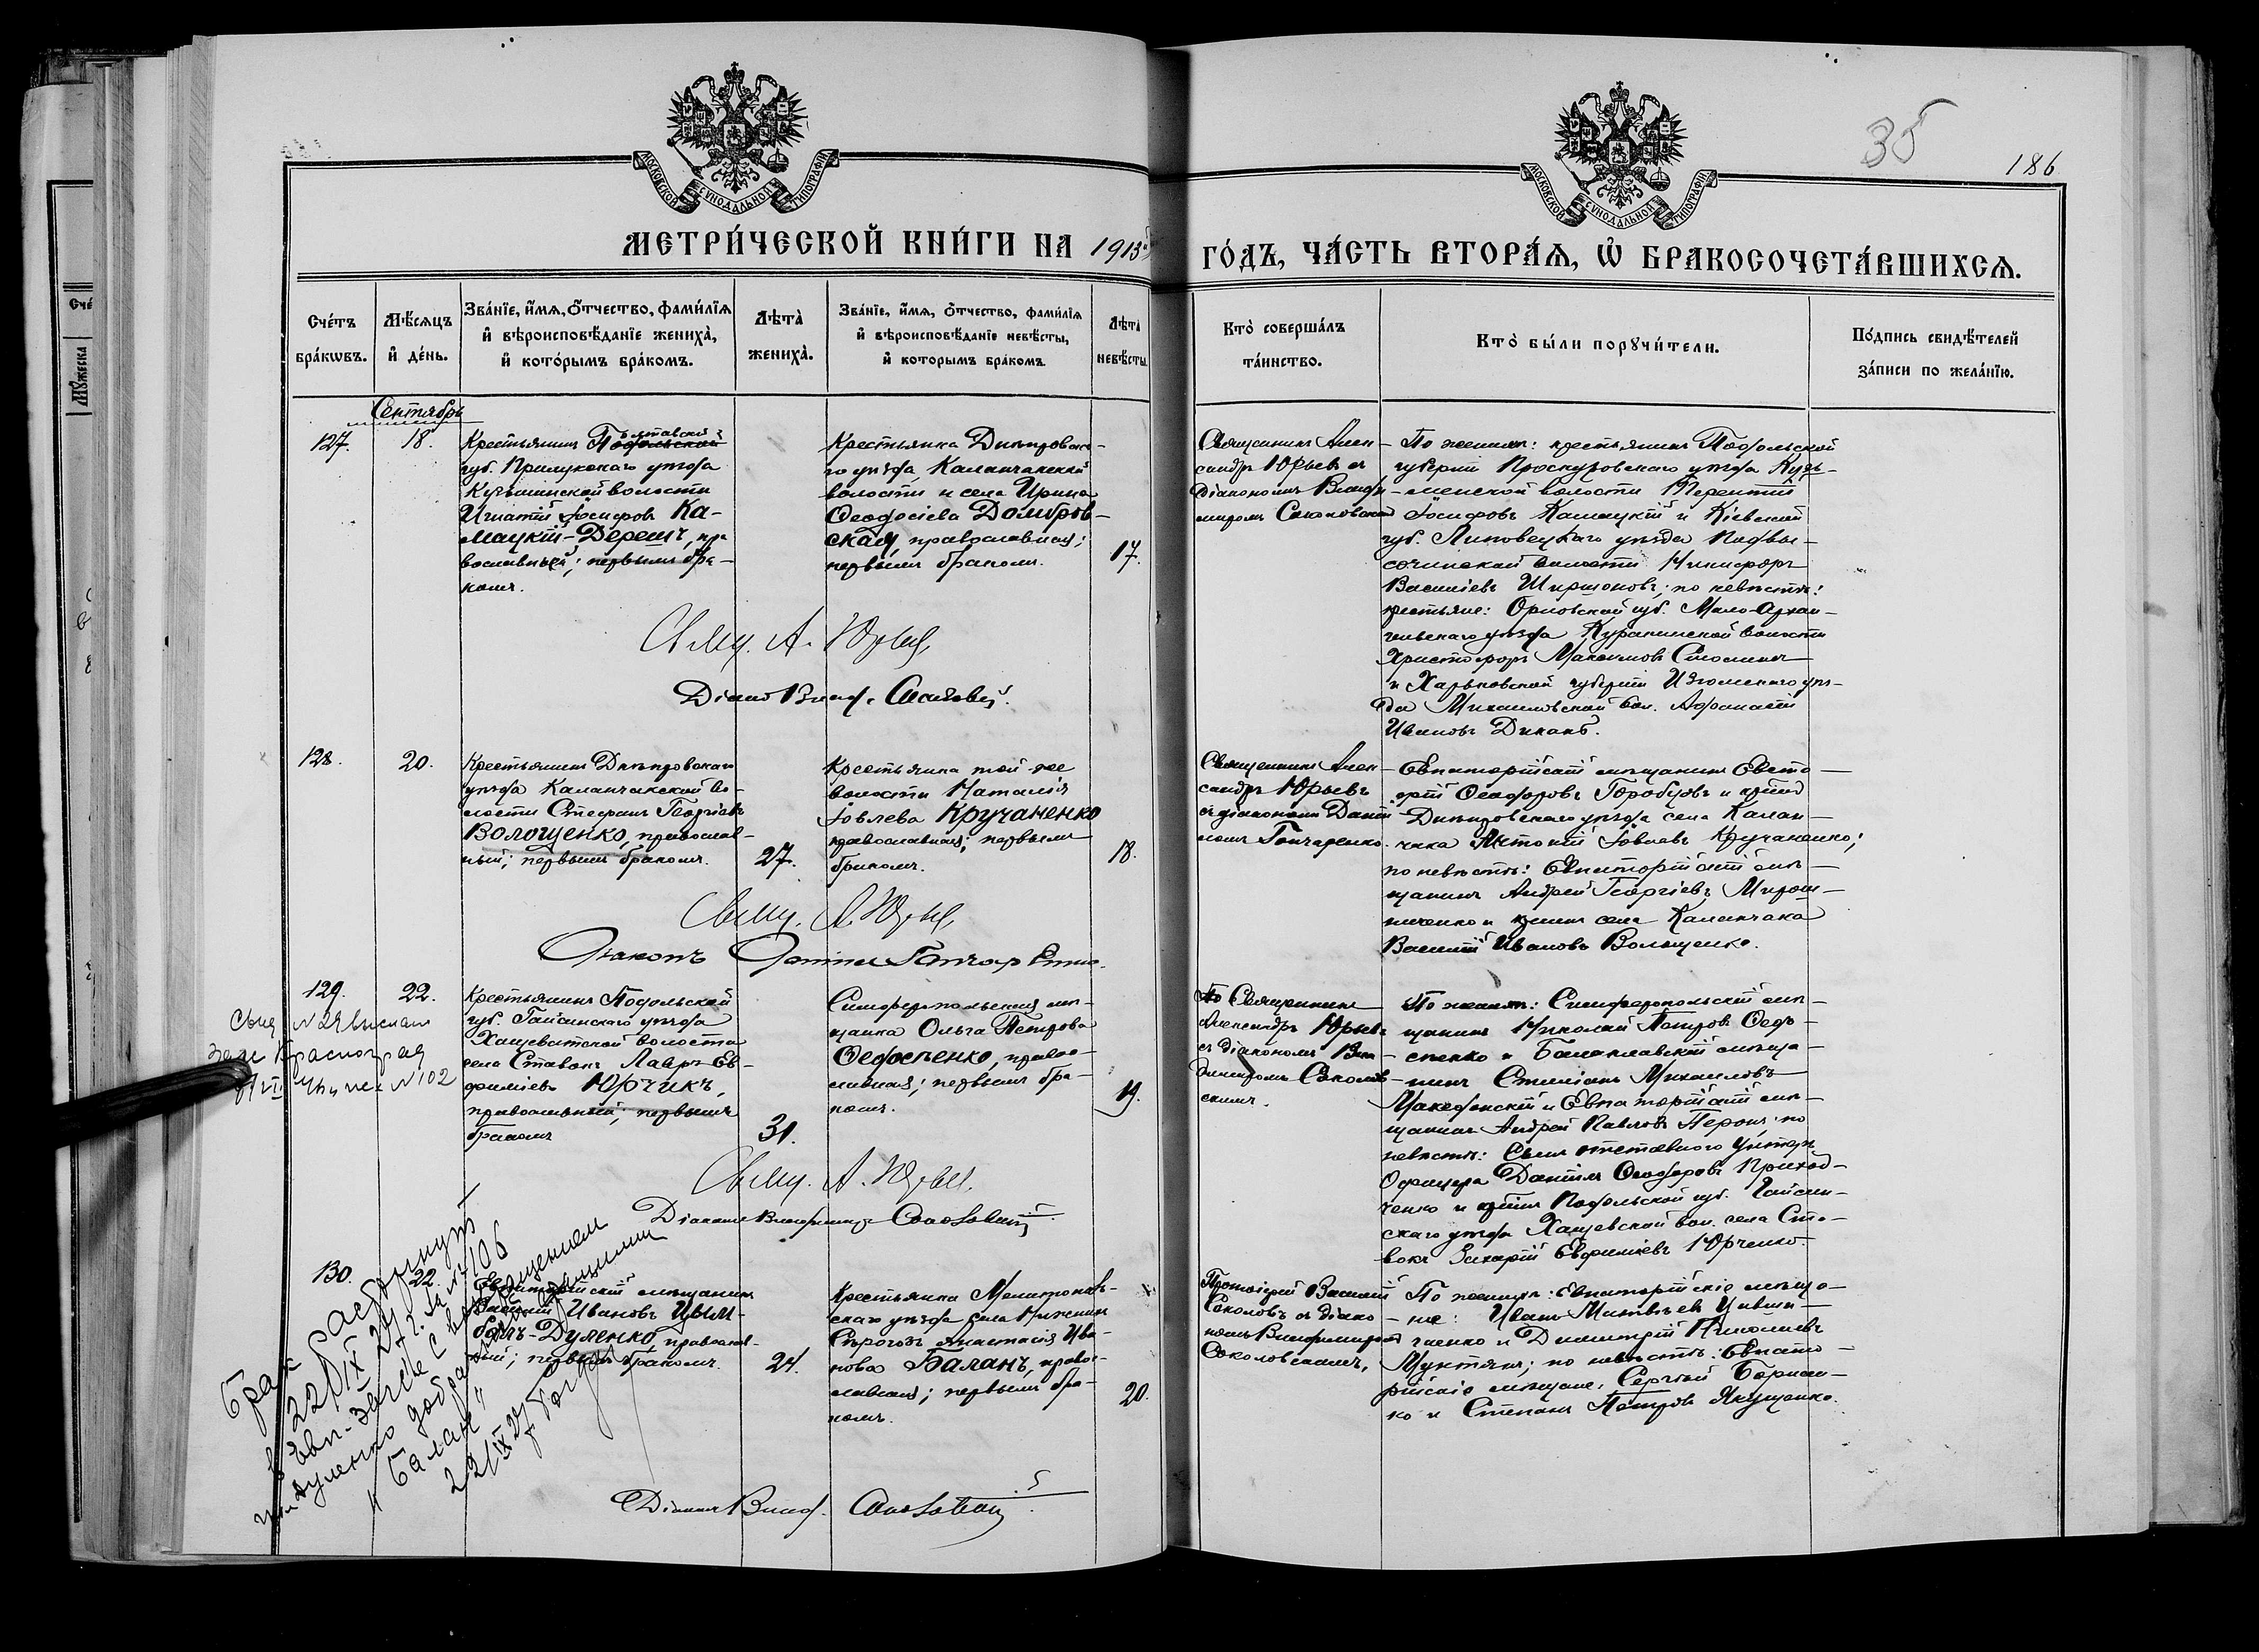 35
186
МОСКОВСКОЙ СУНОДАЛЬНОЙ ТИПОГРАФІИ
МОСКОВСКОЙ СУНОДАЛЬНОЙ ТИПОГРАФІИ
МЕТРИ́ЧЕСКОЙ КНИ́ГИ НА 1913
ГО́ДЪ, ЧА́СТЬ ВТОРА́Ѧ, Ѽ БРАКОСОЧЕТА́ВШИХСѦ.
Сче́тъ бра́кωвъ.
Мѣ́сяцъ и҆ де́нь.
Зва́нїе, и҆́мѧ, ѻ҆́тчество, фами́лїѧ
и҆ вѣроисповѣ́данїе жениха̀,
и҆ кото́рымъ бра́комъ.
Лѣта̀ жениха̀.
Зва́нїе, и҆́мѧ, ѻ҆́тчество, фами́лїѧ
и҆ вѣроисповѣ́данїе невѣ́сты,
и҆ которымъ бра́комъ.
Лѣта̀ невѣ́сты.
Кто̀ соверша́лъ
та́инство.
Кто̀ бы́ли порꙋчи́тели.
По́дпись свидѣ́телей
за́писи по жела́нїю.
Сентябрь
127.
18.
Крестьянинъ Подольской Полтавской
губ. Прилукскаго уѣзда
Кузьминской волости
Игнатій Іосифовъ Ка-
мацкій-Дерешъ, пра
вославный; первымъ бра-
комъ.
Крестьянка Днѣпровска-
го уѣзда, Каланчакской
волости и села Ирина
Ѳеодосіева Домбров-
ская, православная;
первымъ бракомъ.
17.
Священникъ Алек-
сандръ Юрьевъ съ
діакономъ Влади-
миромъ Соколовскимъ
По женихѣ: крестьянинъ Подольской
губерніи Проскуровскаго уѣзда Кузь-
менской волости Терентій
Іосифовъ Камацкій и Кіевской
губ. Липовецкаго уѣзда Подвы-
сочинской волости Никифоръ
Василіевъ Ширшоновъ; по невѣстѣ:
крестьяне: Орловской губ. Мало-Архан-
гельскаго уѣзда Куракинской волости
Христофоръ Максимовъ
и Харьковской губерніи Изюмскаго уѣз-
да Михаиловской вол. Афанасій
Ивановъ Диканъ.
Свящ. А. Юрьевъ
Діак. Влад. Соколовскій.
128.
20.
Крестьянинъ Днѣпровскаго
уѣзда Каланчакской во-
лости Стефанъ Георгіевъ
Волощенко, православ-
ный; первымъ бракомъ.
27.
Крестьянка той-же
волости Наталія
Іовлева Кручаненко
православная; первымъ
бракомъ.
18.
Священникъ Алек-
сандръ Юрьевъ
съ діакономъ Даніи
ломъ Гончаренко.
Евпаторійскій мѣщанинъ Евста-
фій Ѳеодоровъ Горобцовъ и кр-нъ
Днѣпровскаго уѣзда села Калан-
чака Антоній Іовлевъ Кручаненко;
по невѣстѣ: Евпаторійскій мѣ-
щанинъ Андрей Георгіевъ Мирош-
ниченко и кр-нъ села Каланчака
Василій Ивановъ Волощенко.
Свящ. А. Юрьевъ
Діаконъ Даніилъ Гончаренко.
129.
22.
Крестьянинъ Подольской
губ. Гайсинскаго уѣзда
Хащеватской волости
села Ставокъ Лавръ Ев-
фиміевъ Юрчикъ,
православный; первымъ
бракомъ
31.
Симферопольская мѣ-
щанка Ольга Петрова
Ѳедосѣенко, право-
славная; первымъ бра-
комъ.
19.
Священникъ
Александръ Юрьевъ
съ діакономъ Вла-
димиромъ Соколов-
скимъ.
По женихѣ: Симферопольскій мѣ-
щанинъ Николай Петровъ Ѳедо-
сѣенко и Балаклавскій мѣща-
нинъ Стиліанъ Михаиловъ
Македонскій и Евпаторійскій мѣ-
щанинъ Андрей Павловъ; по
невѣстѣ: Сынъ отставного унтеръ
офицера Даніилъ Ѳеодоровъ Приход-
ченко и кр-нъ Подольской губ. Гайсин-
скаго уѣзда Хащевской вол. села Ста-
вокъ Захарій Евфиміевъ Юрченко.
Свящ. А. Юрьевъ.
Діаконъ Владимиръ Соколовскій.
№ 102
130.
22.
Евпаторійскій мѣщанинъ
Ивановъ Цым-
балъ-Дуленко, православ-
ный; первымъ бракомъ.
24.
Крестьянка Мелитополь-
скаго уѣзда села Нижнихъ
Сѣрогозъ Анастасія Ива-
нова Баланъ, право-
славная; первымъ бра-
комъ.
20.
Протоіерей Василій
Соколовъ съ діако-
номъ Владимиромъ
Соколовскимъ.
По женихѣ: Евпаторійскіе мѣща-
не: Иванъ Матвѣевъ
и Димитрій Николаевъ
Мунтянъ; по невѣстѣ: Евпато-
рійскіе мѣщане, Сергѣй
и Степанъ Петровъ Якущенко.
Брак расторгнут
22/IX 27 г. за № 106
в Евп. Загсе с
добрачной фамилии
„Балан“
22/IX 27 г.
Діаконъ Влад. Соколовскій